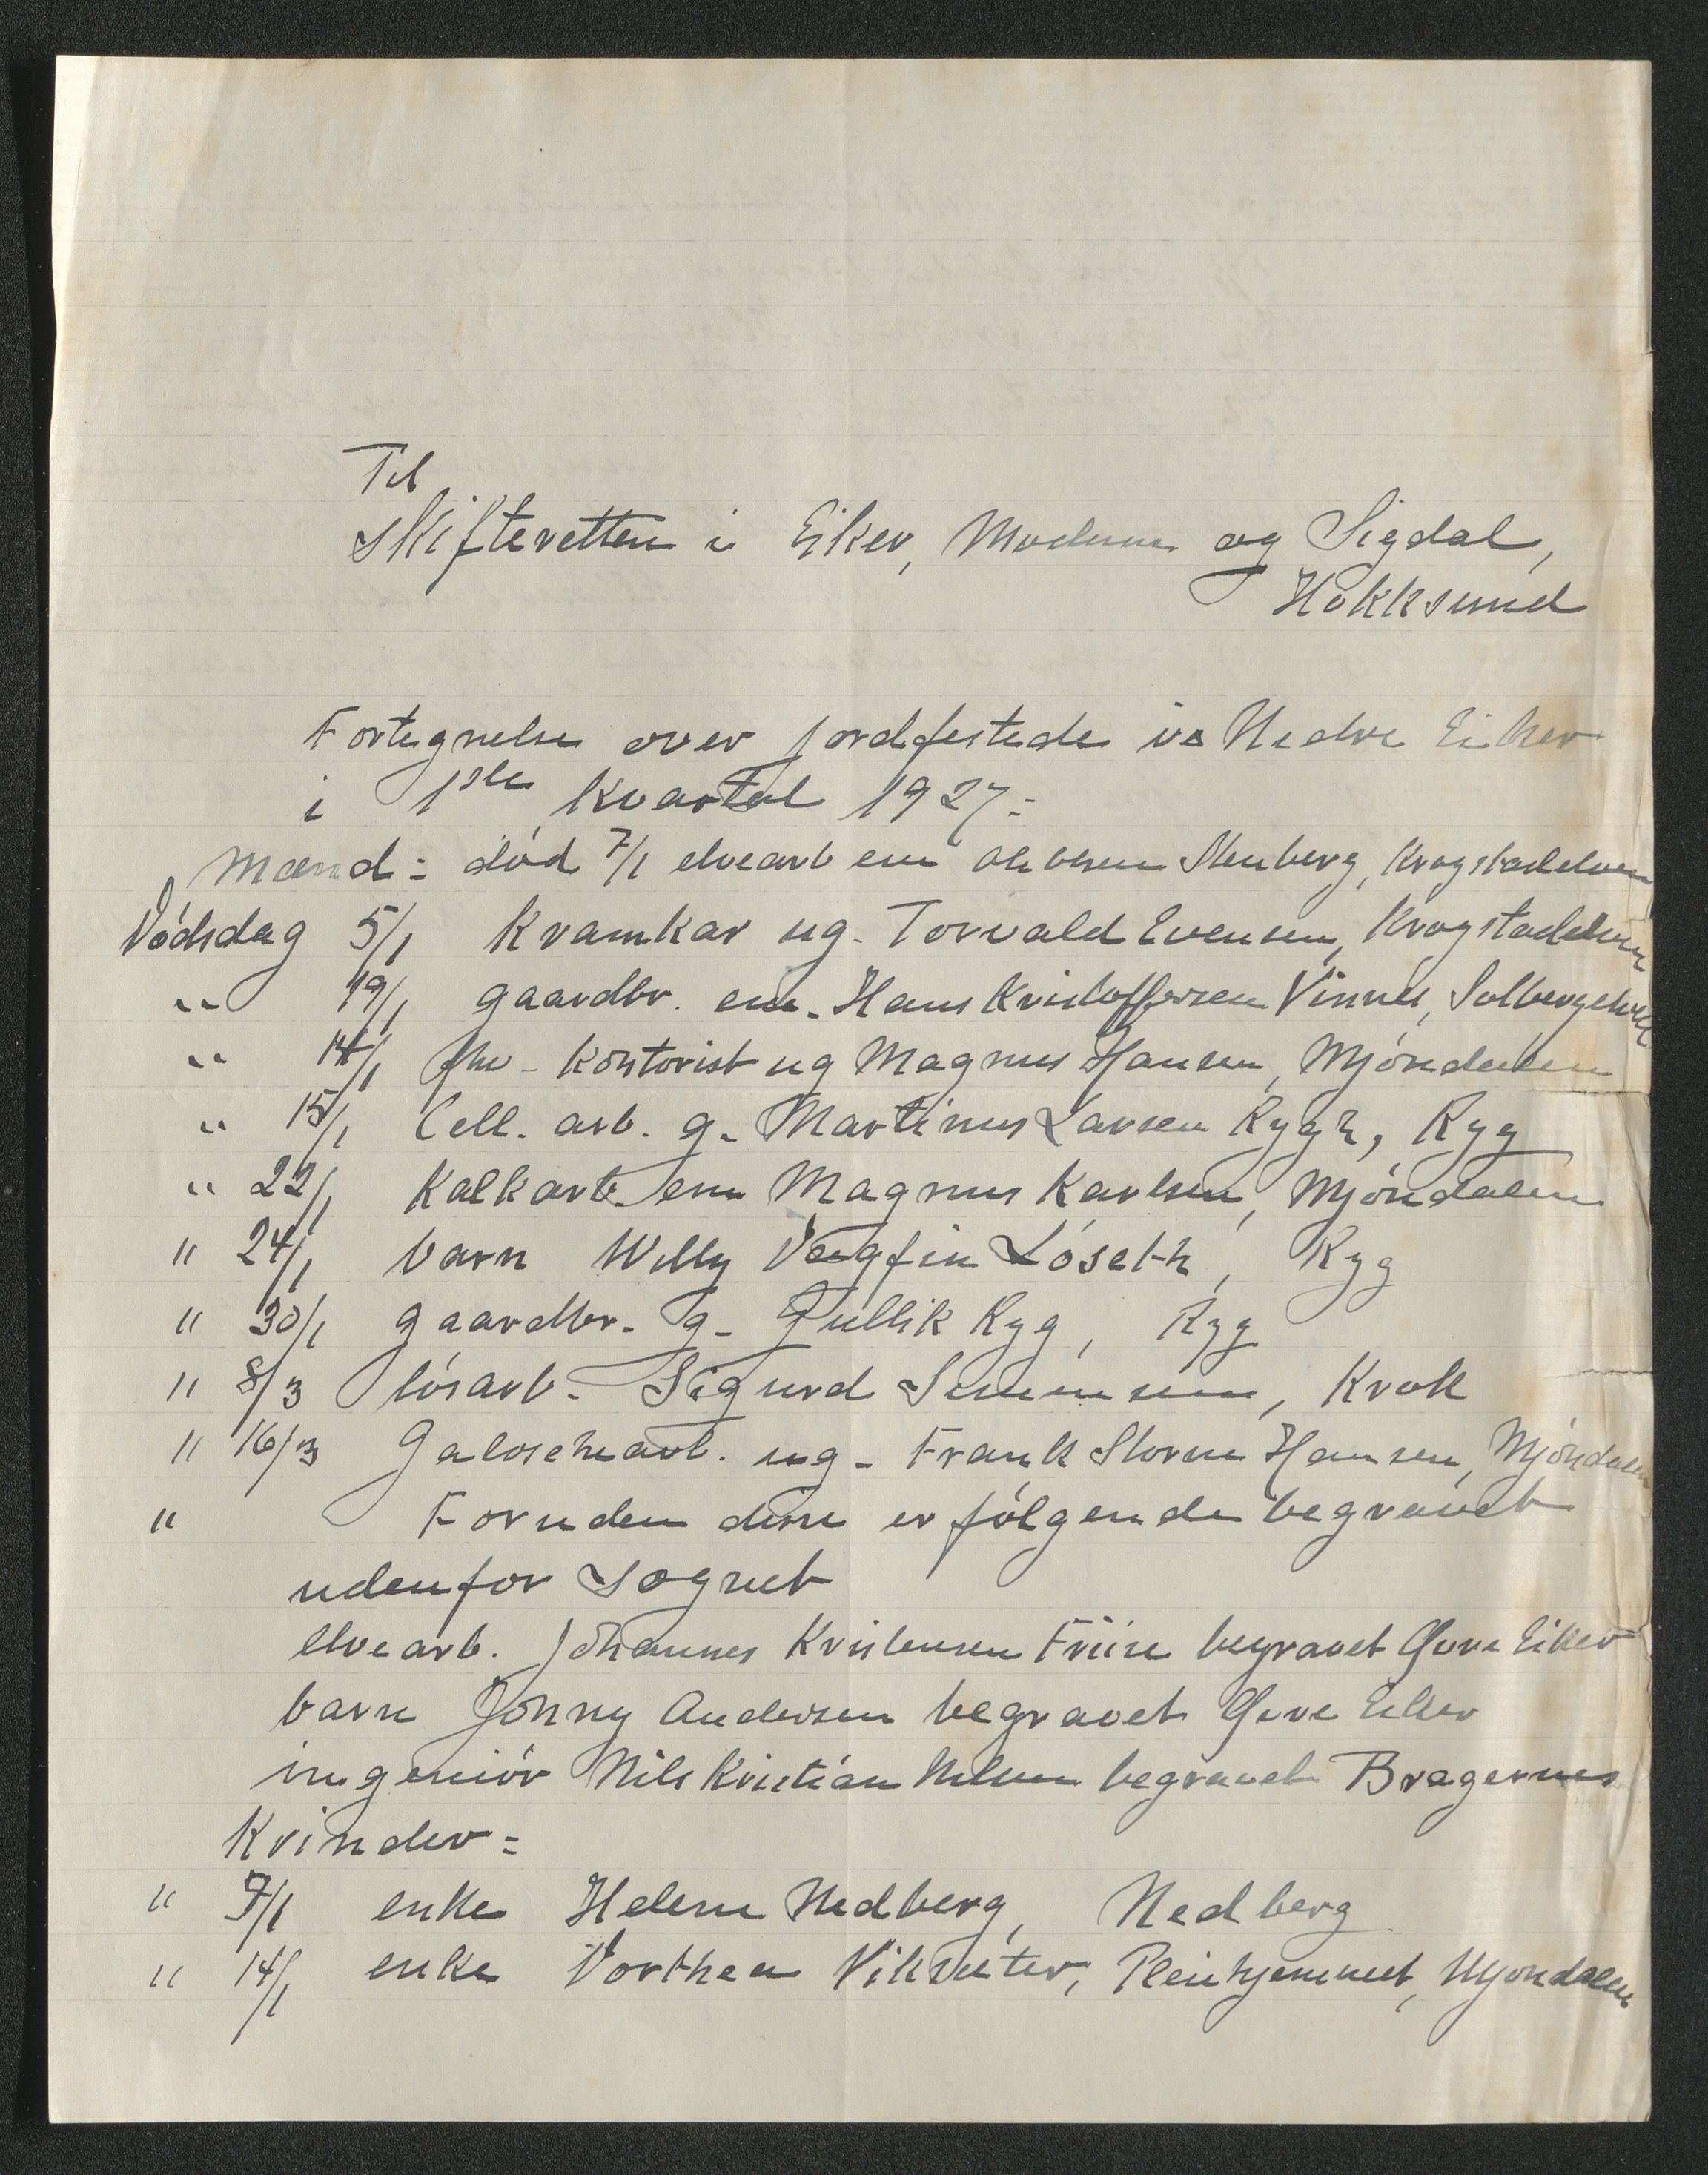 Til
Skifteretten i Eiker, Modum og Sigdal,
Hokksund
Fortegnelse over jordfestede i Nedre Eiker
i 1ste kvartal 1927:
Mænd: død 7/1 elvearb em Ole Olsen Stenberg, Krogstadelven
Dødsdag 5/1 Kramkar ug. Torvald Evensen, Krogstadelven
" 19/1 gaardbr. em. Hans Kristoffersen Vinnes, Solbergelven
" 14/1 fhv. kontorist ug Magnus Hansen, Mjøndalen
" 15/1 Cell. arb. g. Martinus Larsen Rygh, Ryg
" 22/1 Kalkarb. em Magnus Karlsen, Mjøndalen
" 24/1 barn Willy Dagfin Løseth, Ryg
" 30/1 gaardbr. g. Gullik Ryg, Ryg
" 8/3 løsarb. Sigurd Simensen, Krok
" 16/3 Galoschearb. ug. Frank Storm Hansen, Mjøndalen
" Foruden disse er følgende begravet
udenfor Sognet
elvearb. Johannes Kristensen Friise begravet Øvre Eiker
barn Jonny Andersen begravet Øvre Eiker
ingeniør Nils Kristian Nilsen begravet Bragernes
Kvinder:
" 7/1 enke Helene Nedberg, Nedberg
" 14/1 enke Dorthea Viksæter, Pleiehjemmet, Mjøndalen